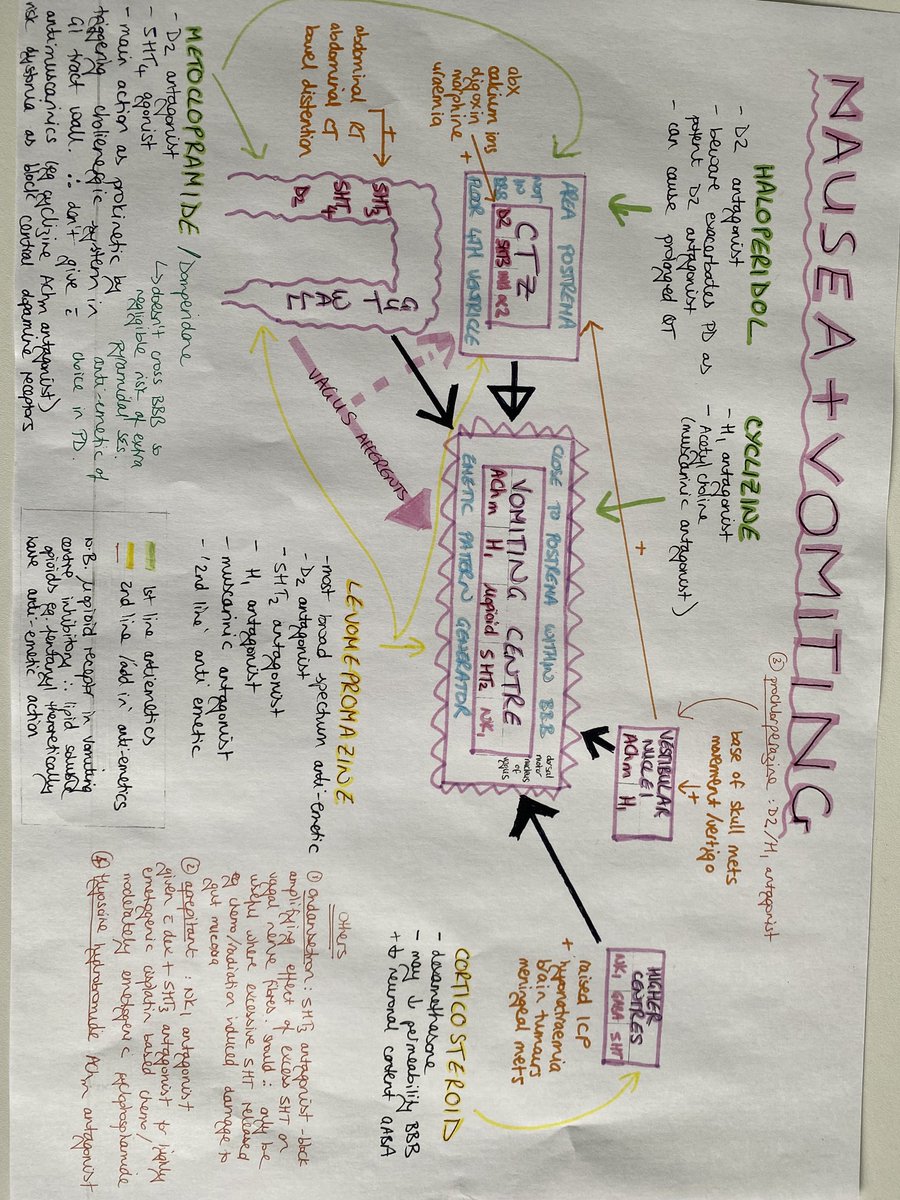 NAUSEA + VOMITING
HALOPERIDOL
- D2 antagonist
- beware exacerbates PD as
potent D2 antagonist
- can cause prolonged QT
CYCLIZINE
- H1 antagonist
- Acetylcholine
(muscarinic antagonist)
③ prochlorperazine : D2/H1 antagonist
base of skull mets
movement/vertigo
+
VESTIBULAR
NUCLEI
AChm H1
+
abx
calcium ions
digoxin
morphine
uraemia
+
AREA POSTREMA
NOT
IN
BBB
CTZ
D2 5HT3
FLOOR 4TH VENTRICLE
CLOSE TO POSTREMA WITHIN BBB
VOMITING CENTRE
AChm H1 μopioid 5HT2 NK1
dorsal
motor
nucleus
of
vagus
EMETIC PATERN GENERATOR
HIGHER
CENTRES
NK1 GABA 5HT
+
raised ICP
hyponatraemia
brain tumours
meningeal mets
abdominal RT
abdominal CT
bowel distention
+
5HT3
5HT4
D2
GUT
WALL
VAGUS AFFERENTS
METOCLOPRAMIDE / Domperidone
- D2 antagonist
- 5HT4 agonist
- main action as prokinetic by
triggering cholienergic system in
GI tract wall ∴ don't give c̄
antimuscarinics (eg cyclizine AChm antagonist)
risk dystonia as block central dopamine receptors
↳ doesn't cross BBB so
negligible risk of extra
pyramidal SEs.
anti-emetic of
choice in PD.
LEVOMEPROMAZINE
- most broad spectrum anti-emetic
- D2 antagonist
- 5HT2 antagonist
- H1 antagonist
- muscarinic antagonist
- '2nd line' anti emetic
CORTICOSTEROID
- dexamethasone
- may ↓ permeability BBB
+ ↓ neuronal content GABA
1st line antiemetics
2nd line /'add in' anti-emetics
N.B. μopioid receptr in vomiting
centre inhibitory ∴ lipid soluble
opioids eg. fentanyl theoretically
have anti-emetic action
Others
① ondansetron : 5HT3 antagonist - block
amplifying effect of excess 5HT on
vagal nerve fibres. ∴ only be
useful where excessive 5HT released
eg chemo/radiation induced damage to
gut mucosa
② aprepitant : NK1 antagonist
given c̄ dex + 5HT3 antagonist to highly
emetogenic cisplatin based chemo/
moderately emetogenic cyclophosphamide
④ Hyoscine hydrobromide AChm antagonist